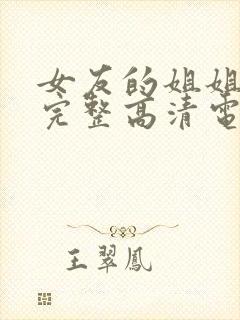 女友的姐姐
完整高清電
王翠鳳